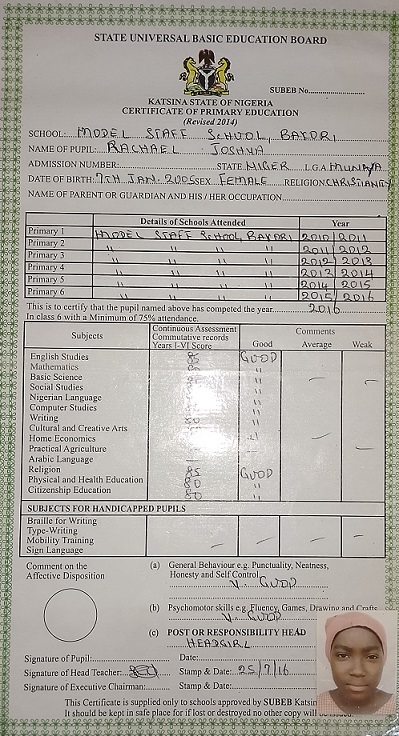 STATE UNIVERSAL BASIC EDUCATION BOARD
SUBEB No.
KATSINA STATE OF NIGERIA
CERTIFICATE OF PRIMARY EDUCATION
(Revised 2014)
SCHOOL: MODEL STAFF SCHOOL, BAKORI
NAME OF PUPIL: RACHAEL JOSHUA
ADMISSION NUMBER: STATE NIGER L.G.A MUNAYA
DATE OF BIRTH: 7TH JAN. 2005 SEX FEMALE RELIGION CHRISTIANITY
NAME OF PARENT OR GUARDIAN AND HIS / HER OCCUPATION
Details of Schools Attended Year
Primary 1 MODEL STAFF SCHOOL BAKORI 2010/2011
Primary 2 " " " " 2011/2012
Primary 3 " " " " 2012/2013
Primary 4 " " " " 2013/2014
Primary 5 " " " " 2014/2015
Primary 6 " " " " 2015/2016
This is to certify that the pupil named above has competed the year 2016
In class 6 with a Minimum of 75% attendance.
Subjects Continuous Assessment Commutative records Years I-VI Score Comments
Good Average Weak
English Studies 85 GOOD
Mathematics "
Basic Science "
Social Studies "
Nigerian Language "
Computer Studies "
Writing "
Cultural and Creative Arts "
Home Economics
Practical Agriculture "
Arabic Language
Religion 85 GOOD
Physical and Health Education 80 "
Citizenship Education 80 "
SUBJECTS FOR HANDICAPPED PUPILS
Braille for Writing
Type-Writing
Mobility Training
Sign Language
Comment on the Affective Disposition
(a) General Behaviour e.g. Punctuality, Neatness,
Honesty and Self Control V. GOOD
(b) Psychomotor skills e.g. Fluency, Games, Drawing and Crafts
V. GOOD
(c) POST OR RESPONSIBILITY HEAD
HEADGIRL
Signature of Pupil: Date:
Signature of Head Teacher: Stamp & Date: 25/7/16
Signature of Executive Chairman: Stamp & Date:
This Certificate is supplied only to schools approved by SUBEB
It should be kept in safe place for if lost or destroyed no other copy will